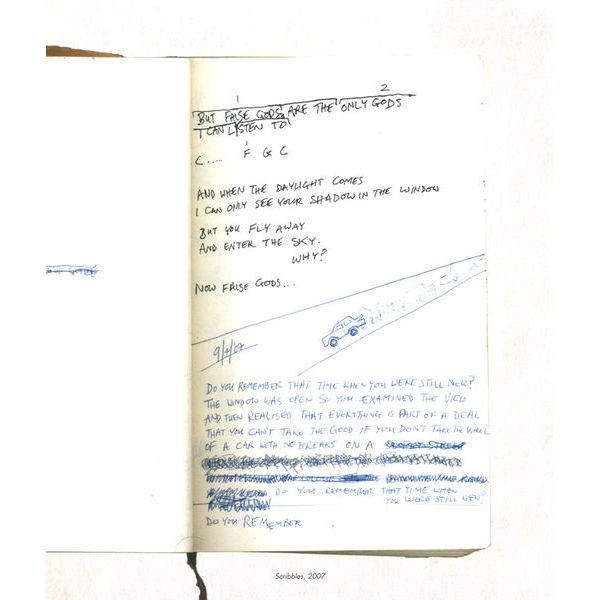 1 2
BUT FALSE GODS ARE THE ONLY GODS
I CAN LISTEN TO
C..... F G C
AND WHEN THE DAYLIGHT COMES
I CAN ONLY SEE YOUR SHADOW IN THE WINDOW
BUT YOU FLY AWAY
AND ENTER THE SKY.
WHY?
NOW FALSE GODS....
DO YOU REMEMBER THAT TIME WHEN YOU WERE STILL NEW?
THE WINDOW WAS OPEN SO YOU EXAMINED THE VIEW
AND THEN REALISED THAT EVERYTHING IS PART OF A DEAL
THAT YOU CAN'T TAKE THE GOOD IF YOU DON'T TAKE THE WHEEL
OF A CAR WITH NO BREAKS ON A
DO YOU REMEMBER THAT TIME WHEN
YOU WERE STILL NEW?
DO YOU REMEMBER
Scribbles, 2007